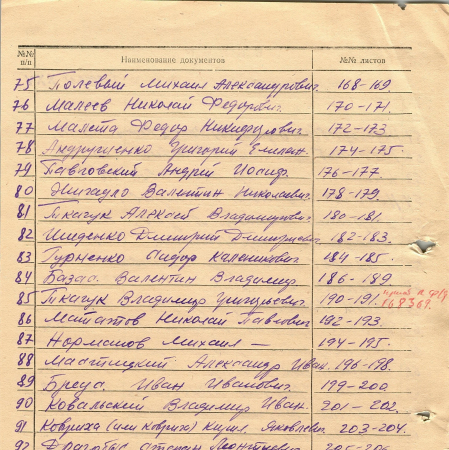 №№ п/п Наименование документов №№ листов
75 Полевой Михаил Александрович. 168-169.
76 Малеев Николай Федорович. 170-171.
77 Малета Федор Никифорович. 172-173
78 Григорий Емельян. 174-175.
79 Павловский Андрей Иосиф. 176-177.
80 Валентин Николаевич. 178-179.
81 Ткачук Алексей Владимирович. 180-181.
82 Ищенко Дмитрий Дмитриевич 182-183.
83 Гурненко Сидор Каленикович 184-185.
84 Базас. Валентин Владимир. 186-189
85 Ткачук Владимир Григорьевич. 190-191. 168369.
86 Николай Павлович 192-193.
87 Норманов Михаил — 194-195.
88 Александр Иван. 196-198.
89 Бреус, Иван Иванович. 199-200.
90 Ковальский Владимир Иван. 201-202.
91 Ковриха (или Коврих) Кирил. Яковлевич. 203-204.
92 Степан Леонтиевич 205-206.